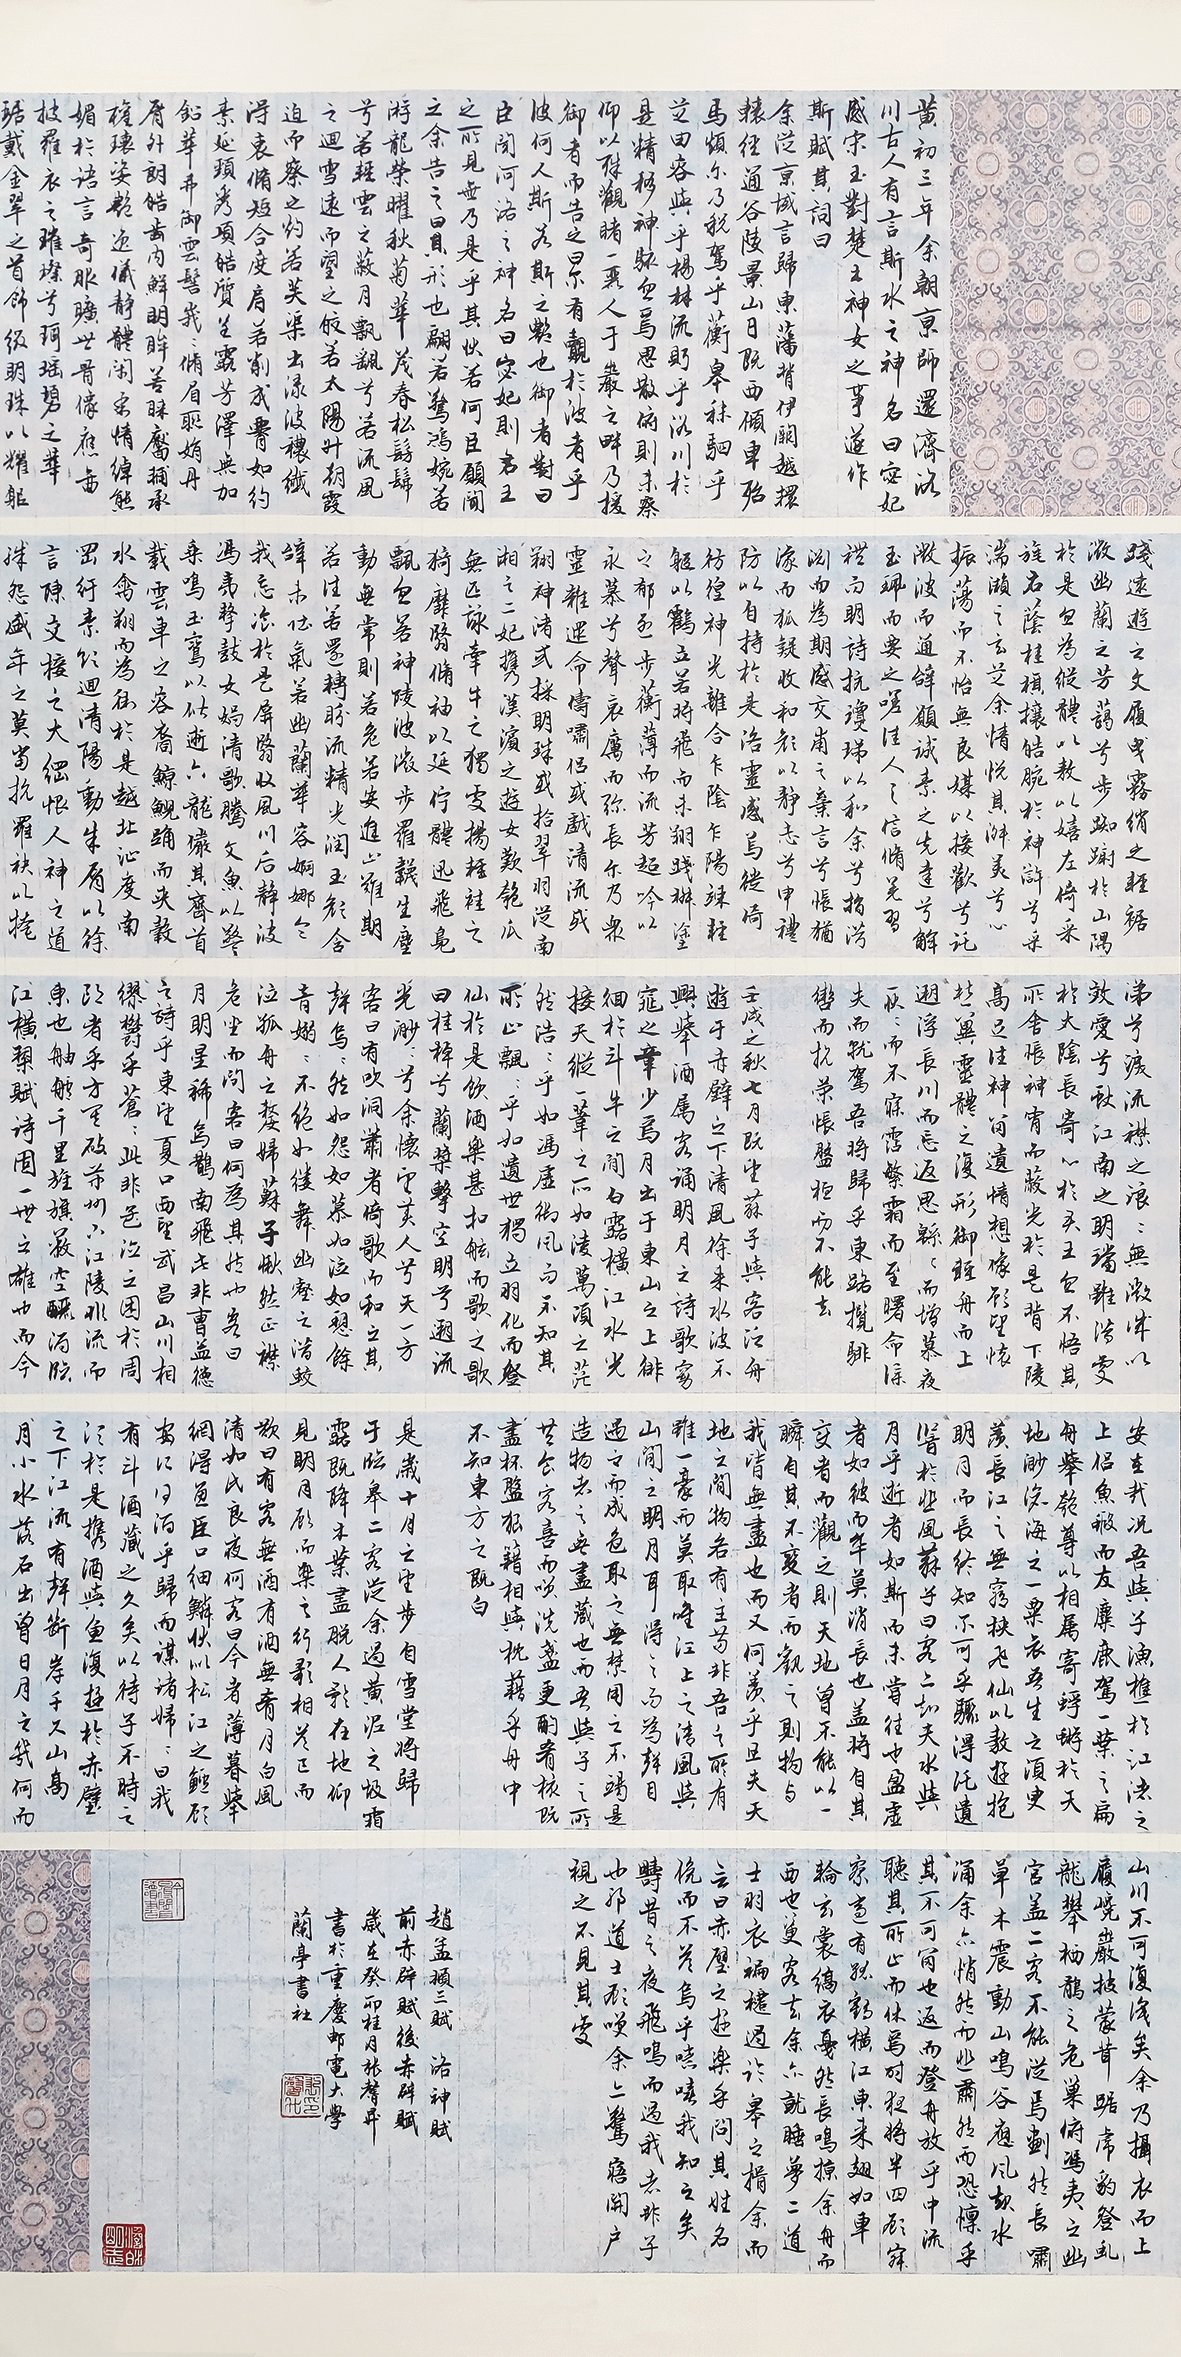 黄初三年余朝京師還濟洛
川古人有言斯水之神名曰宓妃
感宋玉對楚王神女之事遂作
斯賦其詞曰
余從京域言歸東藩背伊闕越轘
轅經通谷陵景山日既西傾車殆
馬煩尔乃税駕乎蘅皋秣駟乎
芝田容與乎楊林流眄乎洛川於
是精移神駭忽焉思散俯則未察
仰以殊觀睹一麗人于巖之畔乃援
御者而告之曰尔有覿於彼者乎
彼何人斯若斯之艷也御者對曰
臣聞河洛之神名曰宓妃則君王
之所見無乃是乎其狀若何臣願聞
之余告之曰其形也翩若驚鴻婉若
游龍榮曜秋菊華茂春松髣髴
兮若輕雲之蔽月飄颻兮若流風
之迴雪遠而望之皎若太陽升朝霞
迫而察之灼若芙渠出渌波穠纖
得衷脩短合度肩若削成腰如約
素延頸秀項皓質呈露芳澤無加
鉛華弗御雲髻峩〻脩眉聯娟丹
脣外朗皓齒内鮮明眸善睞靨輔承
權瓌姿艷逸儀靜體閑柔情綽態
媚於語言奇服曠世骨像應啚
披羅衣之璀璨兮珥瑶碧之華
琚戴金翠之首飾綴明珠以耀軀
踐遠遊之文履曳霧綃之輕裾
微幽蘭之芳藹兮步踟躕於山隅
於是忽焉縱體以敖以嬉左倚采
旄右蔭桂旗攘皓腕於神滸兮采
湍瀨之玄芝余情悦其淑美兮心
振蕩而不怡無良媒以接歡兮託
微波而通辭願誠素之先達兮解
玉珮而要之嗟佳人之信脩羌習
禮而明詩抗瓊珶以和余兮指潛
淵而為期感交甫之棄言兮悵猶
豫而狐疑收和顏以靜志兮申禮
防以自持於是洛靈感焉徙倚
彷徨神光離合乍陰乍陽竦輕
軀以鶴立若將飛而未翔踐椒塗
之郁烈步蘅薄而流芳超吟以
永慕兮聲哀厲而弥長尓乃衆
靈雜遝命儔嘯侶或戲清流或
翔神渚或採明珠或拾翠羽從南
湘之二妃携漢濱之遊女歎匏瓜
無匹詠牽牛之獨處揚輕袿之
猗靡翳脩袖以延佇體迅飛鳧
飄忽若神陵波微步羅韈生塵
動無常則若危若安進止難期
若往若還轉眄流精光潤玉顏含
辭未吐氣若幽蘭華容婀娜令
我忘飡於是屏翳收風川后靜波
馮夷擊鼓女媧清歌騰文魚以警
乘鳴玉鸞以偕逝六龍儼其齊首
載雲車之容裔鯨鯢踊而夾轂
水禽翔而為衛於是越北沚度南
岡紆素領迴清陽動朱脣以徐
言陳交接之大綱恨人神之道
殊怨盛年之莫當抗羅袂以掩
涕兮淚流襟之浪〻無微誠以
效愛兮獻江南之明璫雖潛處
於太陰長寄心於君王忽不悟其
所舍悵神宵而蔽光於是背下陵
高足往神留遺情想像顧望懷
愁冀靈體之復形御輕舟而上
遡浮長川而忘返思緜〻而增慕夜
耿〻而不寐霑繁霜而至曙命僕
夫而就駕吾將歸乎東路攬騑
轡而抗策悵盤桓而不能去
壬戌之秋七月既望蘇子與客泛舟
遊于赤壁之下清風徐來水波不
興舉酒属客誦明月之詩歌窈
窕之章少焉月出于東山之上徘
徊於斗牛之間白露橫江水光
接天縱一葦之所如凌萬頃之茫
然浩〻乎如馮虛御風而不知其
所止飄〻乎如遺世獨立羽化而登
仙於是飲酒樂甚扣舷而歌之歌
曰桂棹兮蘭槳擊空明兮遡流
光渺〻兮余懷望美人兮天一方
客曰有吹洞簫者倚歌而和之其
聲烏〻然如怨如慕如泣如愬餘
音嫋〻不絕如縷舞幽壑之潛蛟
泣孤舟之嫠婦蘇子愀然正襟
危坐而問客曰何為其然也客曰
月明星稀烏鵲南飛此非曹孟德
之詩乎東望夏口西望武昌山川相
繆欝乎蒼〻此非孟德之困於周
郎者乎方其破荊州下江陵順流而
東也舳艫千里旌旗蔽空釃酒臨
江橫槊賦诗固一世之雄也而今
安在哉況吾與子漁樵於江渚之
上侶魚鰕而友麋鹿駕一葉之扁
舟舉匏尊以相属寄蜉蝣於天
地渺滄海之一粟哀吾生之須臾
羨長江之無窮挾飛仙以敖遊抱
明月而長终知不可乎驟得託遺
響於悲風蘇子曰客亦知夫水與
月乎逝者如斯而未嘗往也盈虛
者如彼而卒莫消長也盖將自其
變者而觀之則天地曾不能以一
瞬自其不變者而觀之則物与
我皆無盡也而又何羨乎且夫天
地之間物各有主苟非吾之所有
雖一豪而莫取唯江上之清風與
山間之明月耳得之而為聲目
遇之而成色取之無禁用之不竭是
造物者之無盡藏也而吾與子之所
共食客喜而咲洗盞更酌肴核既
盡杯盤狼籍相與枕藉乎舟中
不知東方之既白
是歲十月之望步自雪堂將歸
于臨皋二客從余過黄泥之坂霜
露既降木葉盡脱人影在地仰
見明月顧而樂之行歌相答已而
歎曰有客無酒有酒無肴月白風
清如此良夜何客曰今者薄暮舉
網得魚巨口細鱗狀似松江之鱸顧
安所得酒乎歸而謀諸婦〻曰我
有斗酒藏之久矣以待子不時之
須於是携酒與魚復遊於赤壁
之下江流有聲斷岸千尺山高
月小水落石出曾日月之幾何而
山川不可復識矣余乃攝衣而上
履巉巖披蒙茸踞虎豹登虬
龍攀栖鶻之危巢俯馮夷之幽
宫盖二客不能從焉劃然長嘯
草木震動山鳴谷應風起水
涌余亦悄然而悲肅然而恐懔乎
其不可留也返而登舟放乎中流
聽其所止而休焉时夜將半四顧寂
寥適有孤鶴橫江東来翅如車
輪玄裳縞衣戛然長鳴掠余舟而
西也更客去余亦就睡夢二道
士羽衣褊褼過於皋之揖余而
言曰赤壁之遊樂乎問其姓名
俛而不答烏乎噫嘻我知之矣
疇昔之夜飛鳴而過我者非子
也邪道士顧咲余亦驚寤開户
視之不見其處
趙孟頫三賦 洛神賦
前赤辟賦後赤辟賦
歲在癸卯桂月張聲昇
書於重慶邮電大學
蘭亭書社